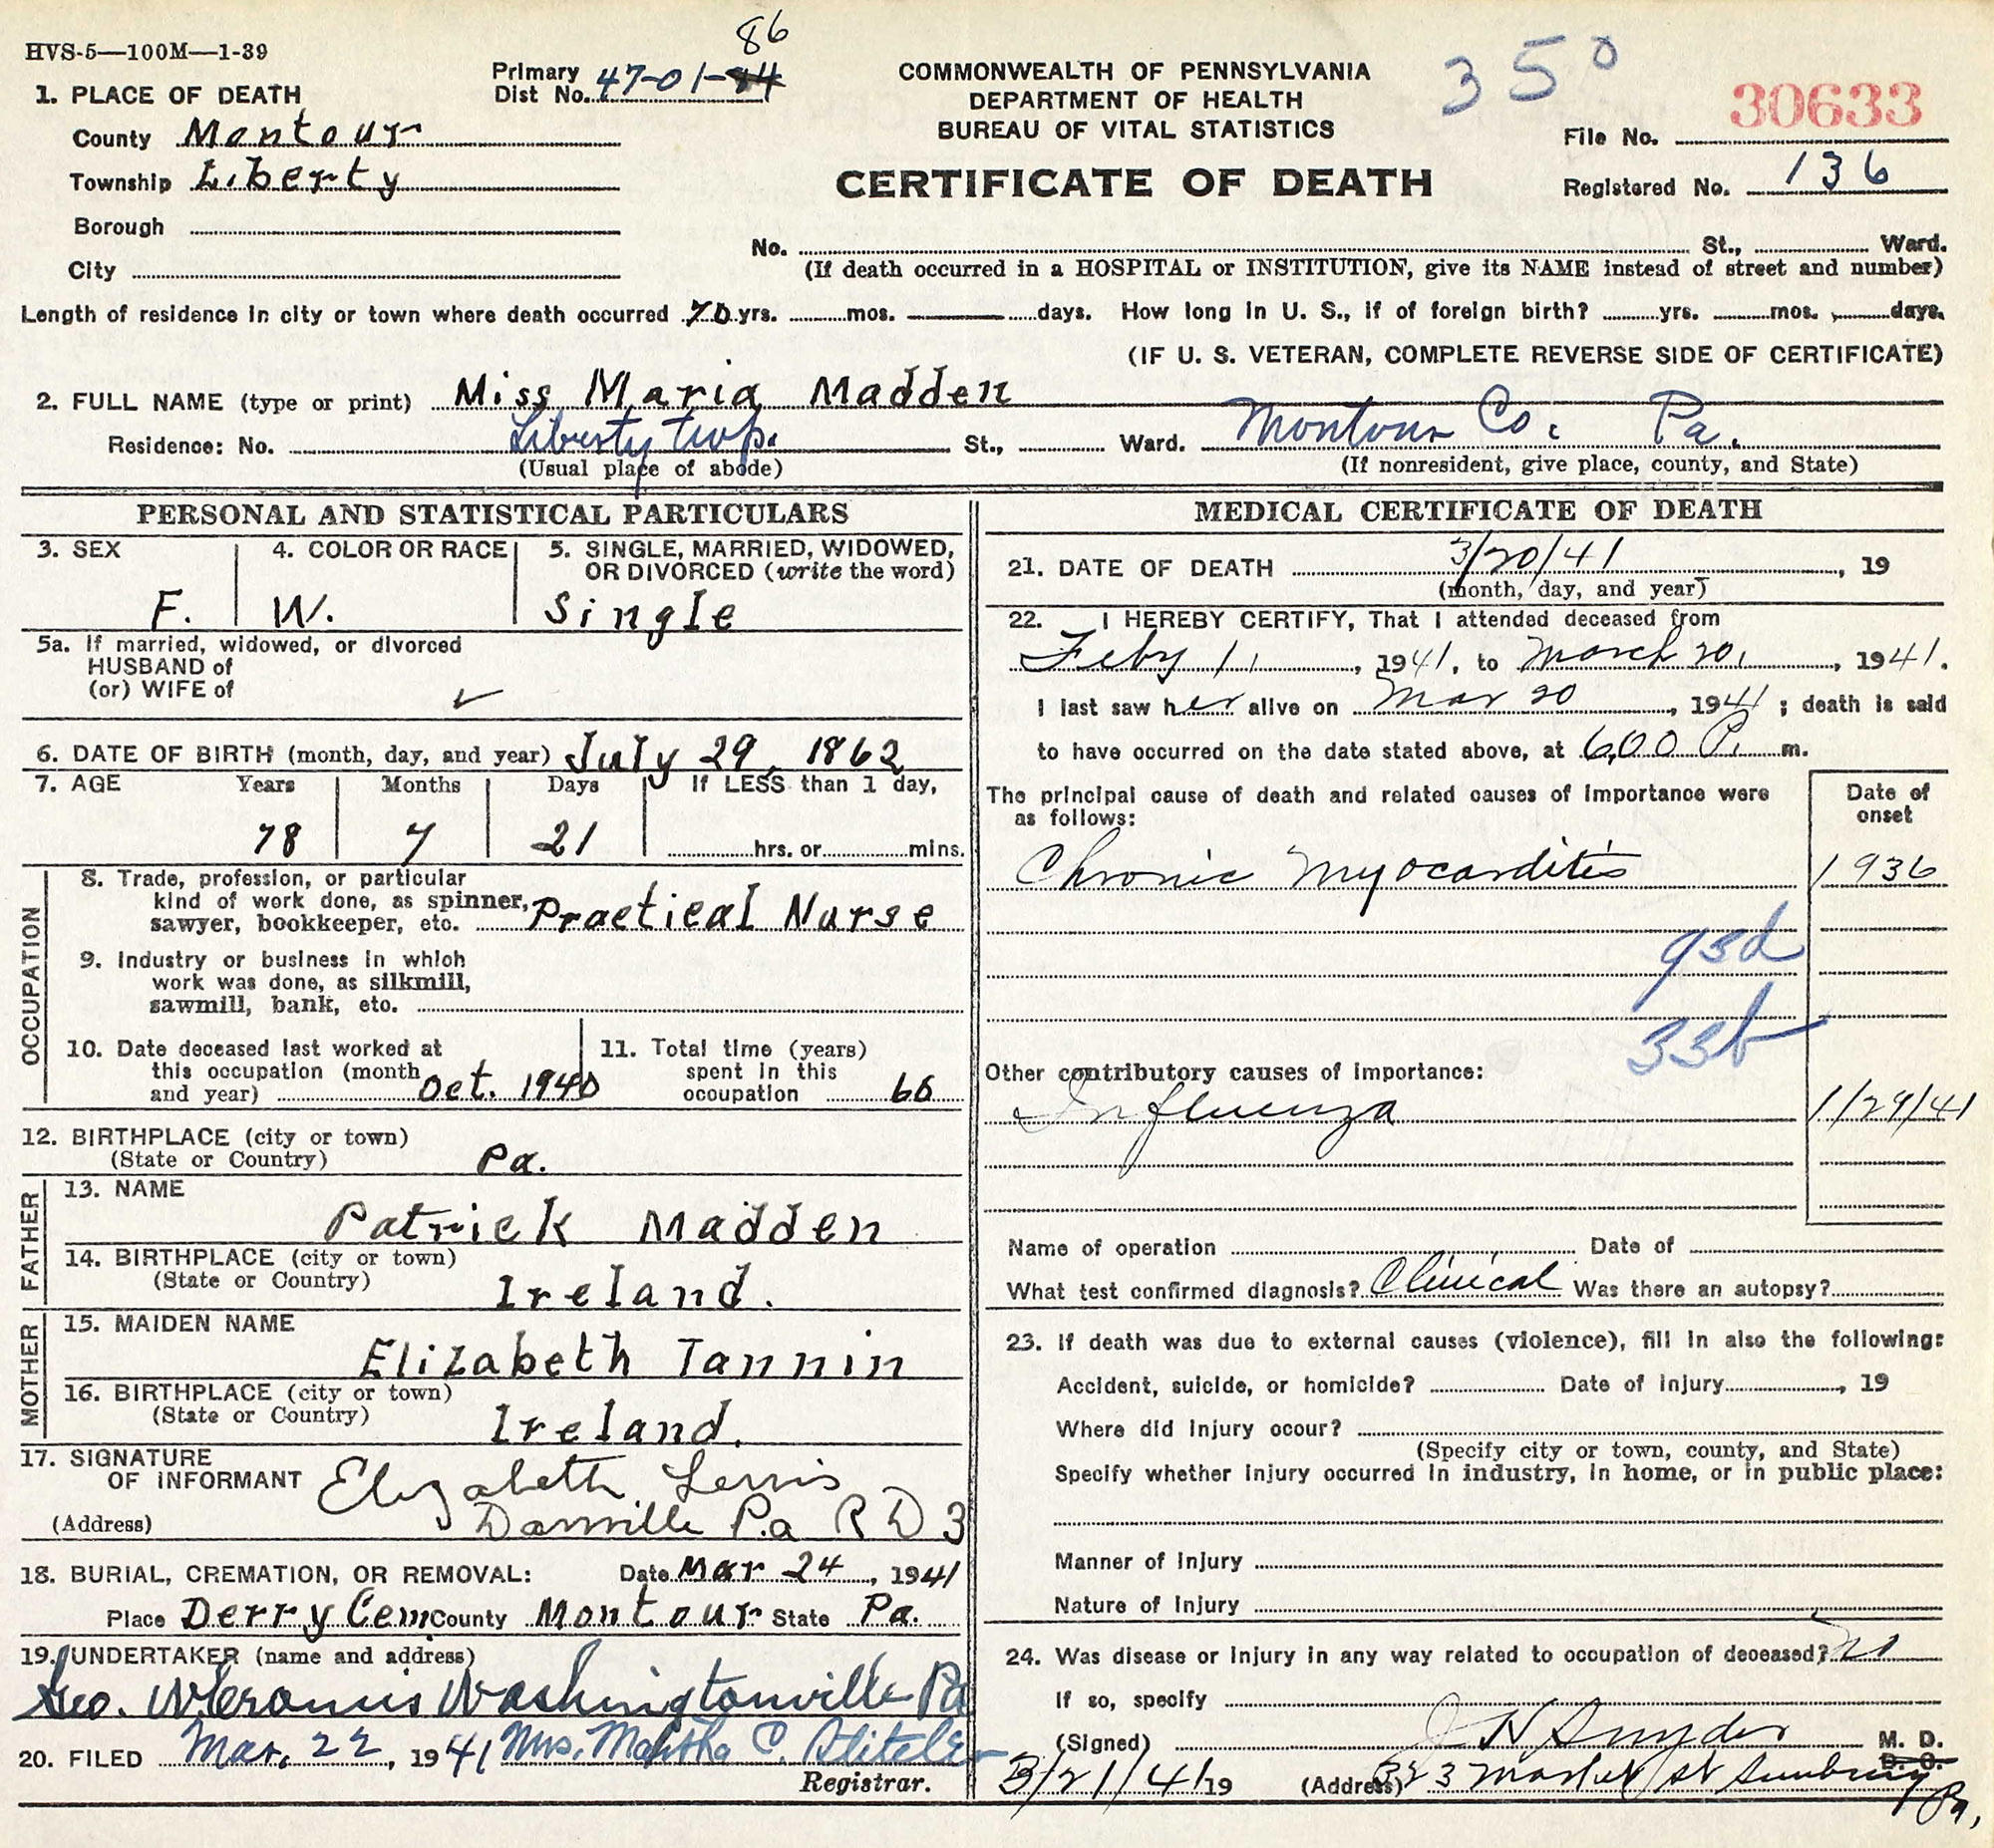 HVS-5—100M—1-39
86
Primary Dist No. 47-01-84
COMMONWEALTH OF PENNSYLVANIA
DEPARTMENT OF HEALTH
BUREAU OF VITAL STATISTICS
CERTIFICATE OF DEATH
35°
30633
File No.
Registered No. 136
1. PLACE OF DEATH
County Montour
Township Liberty
Borough
City
No. St., Ward.
(If death occurred in a HOSPITAL or INSTITUTION, give its NAME instead of street and number)
Length of residence in city or town where death occurred 70 yrs. mos. days. How long in U. S., if of foreign birth? yrs. mos. days.
(IF U. S. VETERAN, COMPLETE REVERSE SIDE OF CERTIFICATE)
2. FULL NAME (type or print) Miss Maria Madden
Residence: No. Liberty twp. St., Ward. Montour Co. Pa.
(Usual place of abode) (If nonresident, give place, county, and State)
PERSONAL AND STATISTICAL PARTICULARS
3. SEX 4. COLOR OR RACE 5. SINGLE, MARRIED, WIDOWED,
OR DIVORCED (write the word)
F. W. Single
5a. If married, widowed, or divorced
HUSBAND of
(or) WIFE of
6. DATE OF BIRTH (month, day, and year) July 29, 1862
7. AGE Years Months Days If LESS than 1 day,
78 7 21 hrs. or mins.
OCCUPATION
8. Trade, profession, or particular
kind of work done, as spinner,
sawyer, bookkeeper, etc. Practical Nurse
9. Industry or business in which
work was done, as silkmill,
sawmill, bank, etc.
10. Date deceased last worked at
this occupation (month
and year) Oct. 1940
11. Total time (years)
spent in this
occupation 60
12. BIRTHPLACE (city or town)
(State or Country) Pa.
FATHER
13. NAME
Patrick Madden
14. BIRTHPLACE (city or town)
(State or Country) Ireland.
MOTHER
15. MAIDEN NAME
Elizabeth Tannin
16. BIRTHPLACE (city or town)
(State or Country) Ireland.
17. SIGNATURE
OF INFORMANT Elizabeth
(Address) Danville Pa R D 3
18. BURIAL, CREMATION, OR REMOVAL: Date Mar 24, 1941
Place Derry Cem County Montour State Pa.
19. UNDERTAKER (name and address)
Geo. W. Washingtonville Pa
20. FILED Mar. 22, 1941 Mrs. Martha C.
Registrar.
MEDICAL CERTIFICATE OF DEATH
21. DATE OF DEATH 3/20/41, 19
(month, day, and year)
22. I HEREBY CERTIFY, That I attended deceased from
Feby 1, 1941, to March 20, 1941.
I last saw her alive on Mar 20, 1941; death is said
to have occurred on the date stated above, at 6,00 P. m.
The principal cause of death and related causes of importance were
as follows:
Date of
onset
Chronic Myocarditis 1936
93d
33b
Other contributory causes of importance:
Influenza 1/29/41
Name of operation Date of
What test confirmed diagnosis? Clinical Was there an autopsy?
23. If death was due to external causes (violence), fill in also the following:
Accident, suicide, or homicide? Date of injury, 19
Where did injury occur?
(Specify city or town, county, and State)
Specify whether injury occurred in industry, in home, or in public place:
Manner of Injury
Nature of Injury
24. Was disease or injury in any way related to occupation of deceased? No
If so, specify
(Signed) Snyder M. D.
D. O.
3/21/41 19 (Address) 323 Market St Sunbury
Pa.